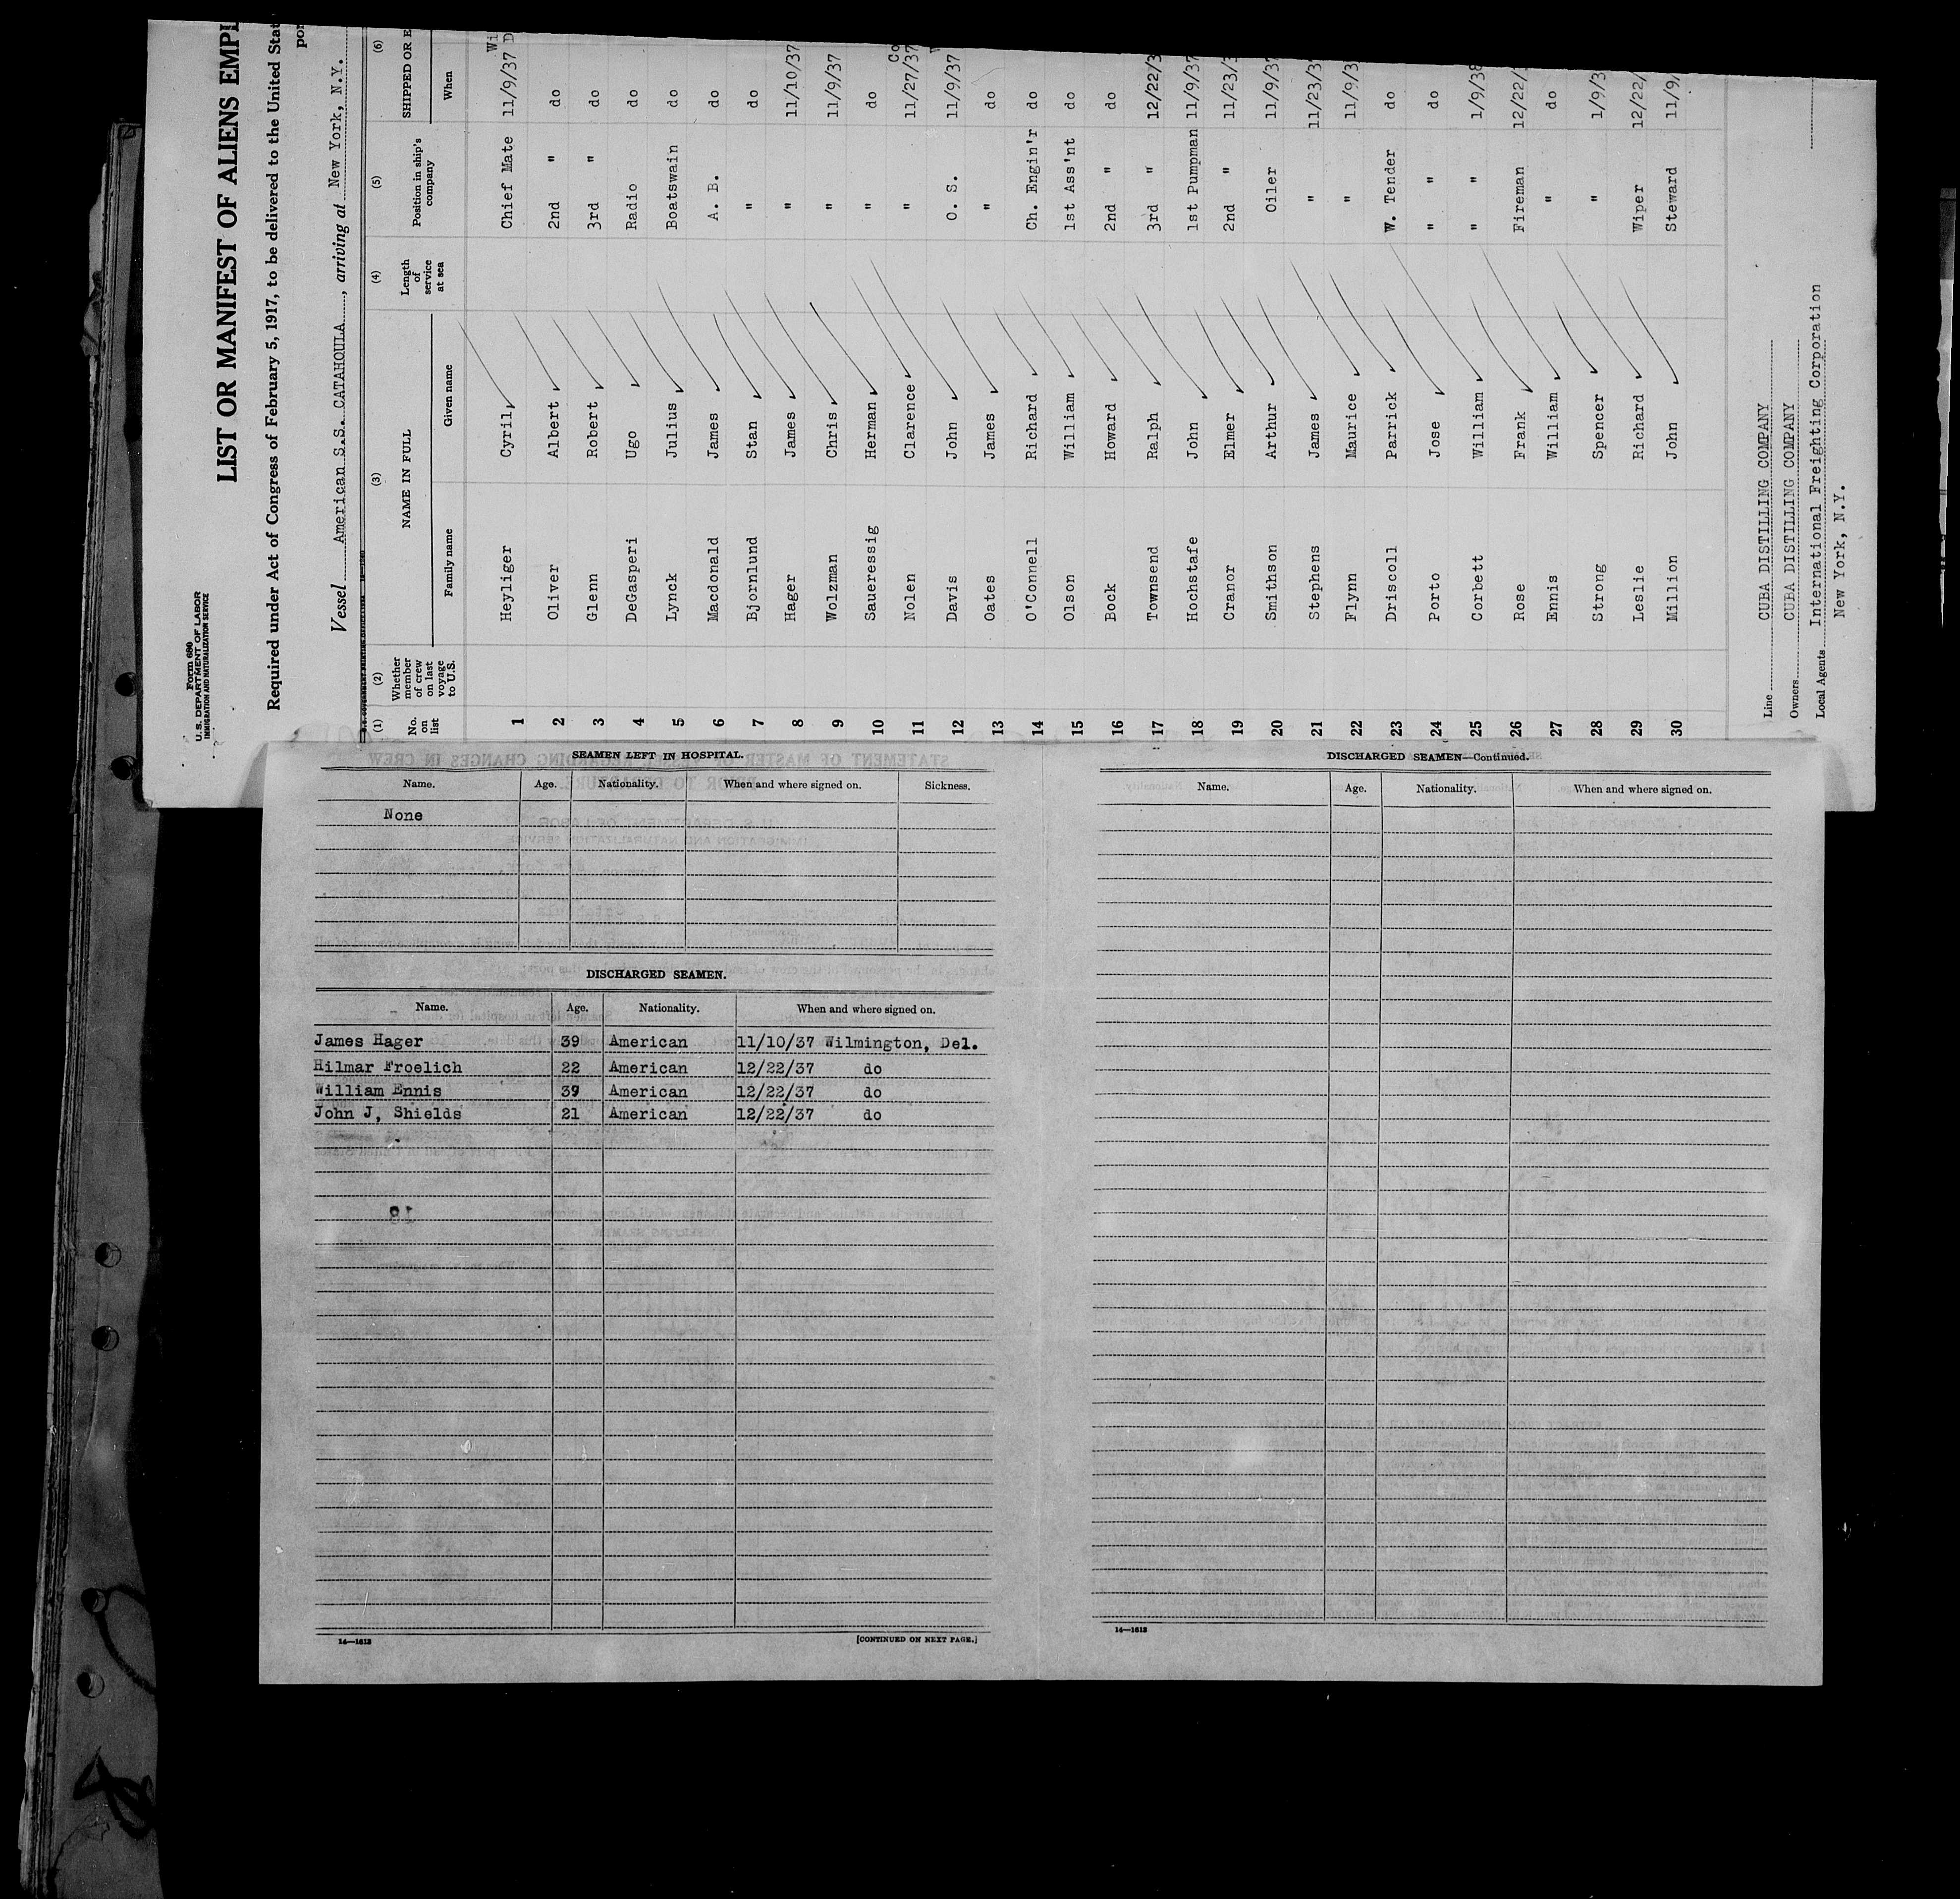 Form 680
U. S. DEPARTMENT OF LABOR
IMMIGRATION AND NATURALIZATION SERVICE
LIST OR MANIFEST OF ALIENS EMPL
Required under Act of Congress of February 5, 1917, to be delivered to the United Stat
por
Vessel American S.S. CATAHOULA, arriving at New York, N.Y.
(1) (2) (3) (4) (5) (6)
No. on list Whether member of crew on last voyage to U.S. NAME IN FULL Length of service at sea Position in ship's company SHIPPED OR E
Family name Given name When
Wi
1 Heyliger Cyril Chief Mate 11/9/37 D
2 Oliver Albert 2nd " do
3 Glenn Robert 3rd " do
4 DeGasperi Ugo Radio do
5 Lynck Julius Boatswain do
6 Macdonald James A. B. do
7 Bjornlund Stan " do
8 Hager James " 11/10/37
9 Wolzman Chris " 11/9/37
10 Saueressig Herman " do
Co
11 Nolen Clarence " 11/27/37
12 Davis John O. S. 11/9/37
13 Oates James " do
14 O'Connell Richard Ch. Engin'r do
15 Olson William 1st Ass'nt do
16 Bock Howard 2nd " do
17 Townsend Ralph 3rd " 12/22/3
18 Hochstafe John 1st Pumpman 11/9/37
19 Crannor Elmer 2nd " 11/23/3
20 Smithson Arthur Oiler 11/9/37
21 Stephens James " 11/23/37
22 Flynn Maurice " 11/9/3
23 Driscoll Parrick W. Tender do
24 Porto Jose " " do
25 Corbett William " " 1/9/38
26 Rose Frank Fireman 12/22/
27 Ennis William " do
28 Strong Spencer " 1/9/3
29 Leslie Richard Wiper 12/22/
30 Million John Steward 11/9/
Line CUBA DISTILLING COMPANY
Owners CUBA DISTILLING COMPANY
Local Agents International Freighting Corporation
New York, N.Y.
SEAMEN LEFT IN HOSPITAL.
Name. Age. Nationality. When and where signed on. Sickness.
None
DISCHARGED SEAMEN.
Name. Age. Nationality. When and where signed on.
James Hager 39 American 11/10/37 Wilmington, Del.
Hilmar Froelich 22 American 12/22/37 do
William Ennis 39 American 12/22/37 do
John J, Shields 21 American 12/22/37 do
14—1613 [CONTINUED ON NEXT PAGE.]
DISCHARGED SEAMEN—Continued.
Name. Age. Nationality. When and where signed on.
14—1613